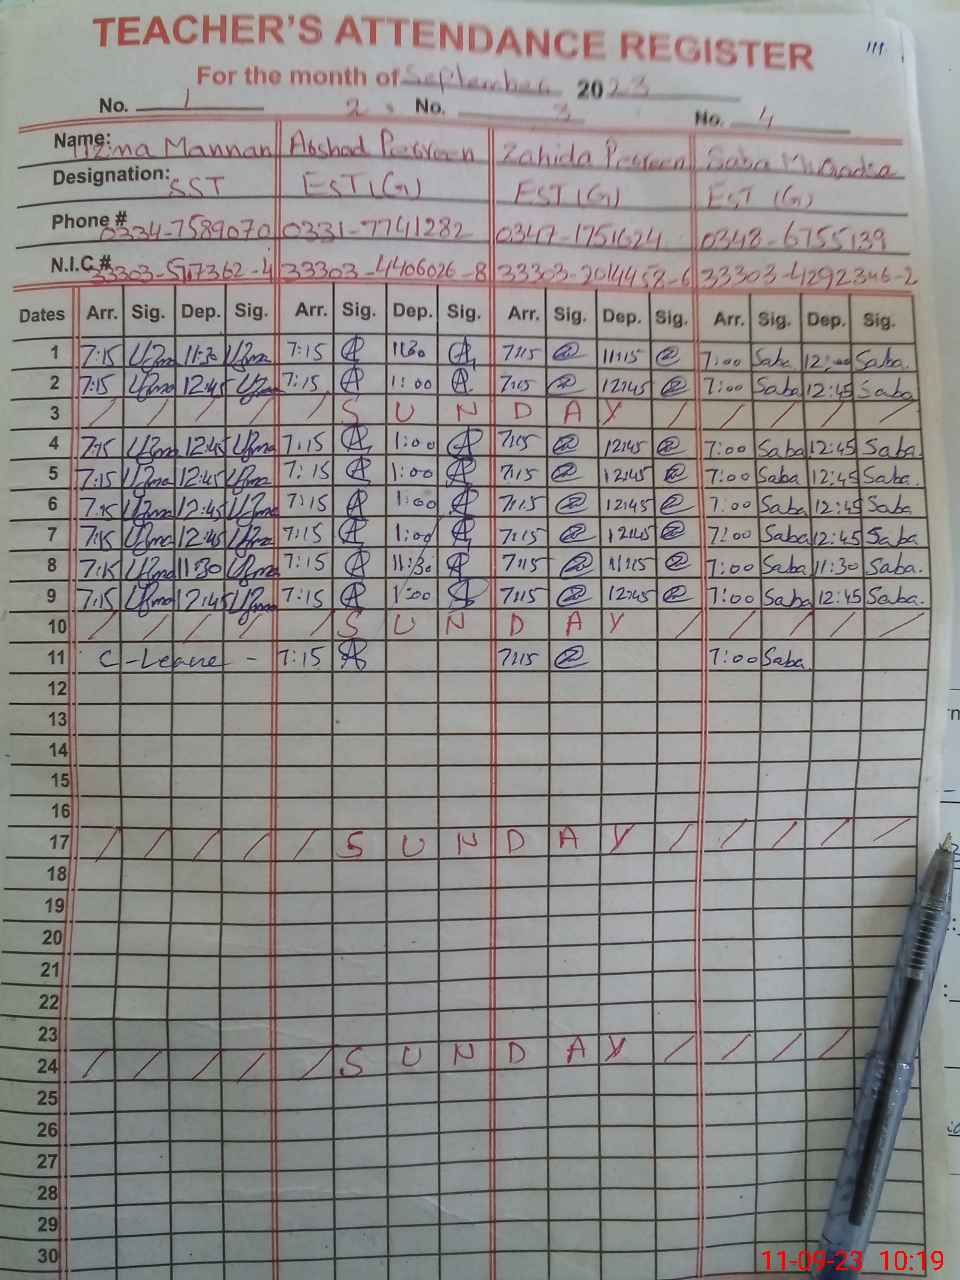 111
TEACHER'S ATTENDANCE REGISTER
For the month of September 2023
No. 1 2. No. 3 No. 4
Name: Mannan Arshad Parveen Zahida Parveen Saba
Designation: SST EST (G) EST (G) EST (G)
Phone # 0334-7589070 0331-7741282 0347-1751624 0348-6755139
N.I.C.# 33303-4406026-8 33303-2014458-6 33303-4292346-2
Dates Arr. Sig. Dep. Sig. Arr. Sig. Dep. Sig. Arr. Sig. Dep. Sig. Arr. Sig. Dep. Sig.
1 7:15 11:30 7:15 A 11:30 A 7:15 11:15 7:00 Saba 12:00 Saba.
2 7:15 12:45 7:15 A 1:00 A 7:15 12:45 7:00 Saba 12:45 Saba
3 / / / / / S U N D A Y / / / / /
4 7:15 12:45 7:15 A 1:00 A 7:15 12:45 7:00 Saba 12:45 Saba.
5 7:15 12:45 7:15 A 1:00 A 7:15 12:45 7:00 Saba 12:45 Saba.
6 7:15 12:45 7:15 A 1:00 A 7:15 12:45 7:00 Saba 12:45 Saba
7 7:15 12:45 7:15 A 1:00 A 7:15 12:45 7:00 Saba 12:45 Saba
8 7:15 11:30 7:15 A 11:30 A 7:15 11:15 7:00 Saba 11:30 Saba.
9 7:15 12:45 7:15 A 1:00 A 7:15 12:45 7:00 Saba 12:45 Saba.
10 / / / / / S U N D A Y / / / / /
11 C - Leave - 7:15 A 7:15 7:00 Saba
12
13
14
15
16
17 / / / / / S U N D A Y / / / / /
18
19
20
21
22
23
24 / / / / / S U N D A Y / / / /
25
26
27
28
29
30
11-09-23 10:19